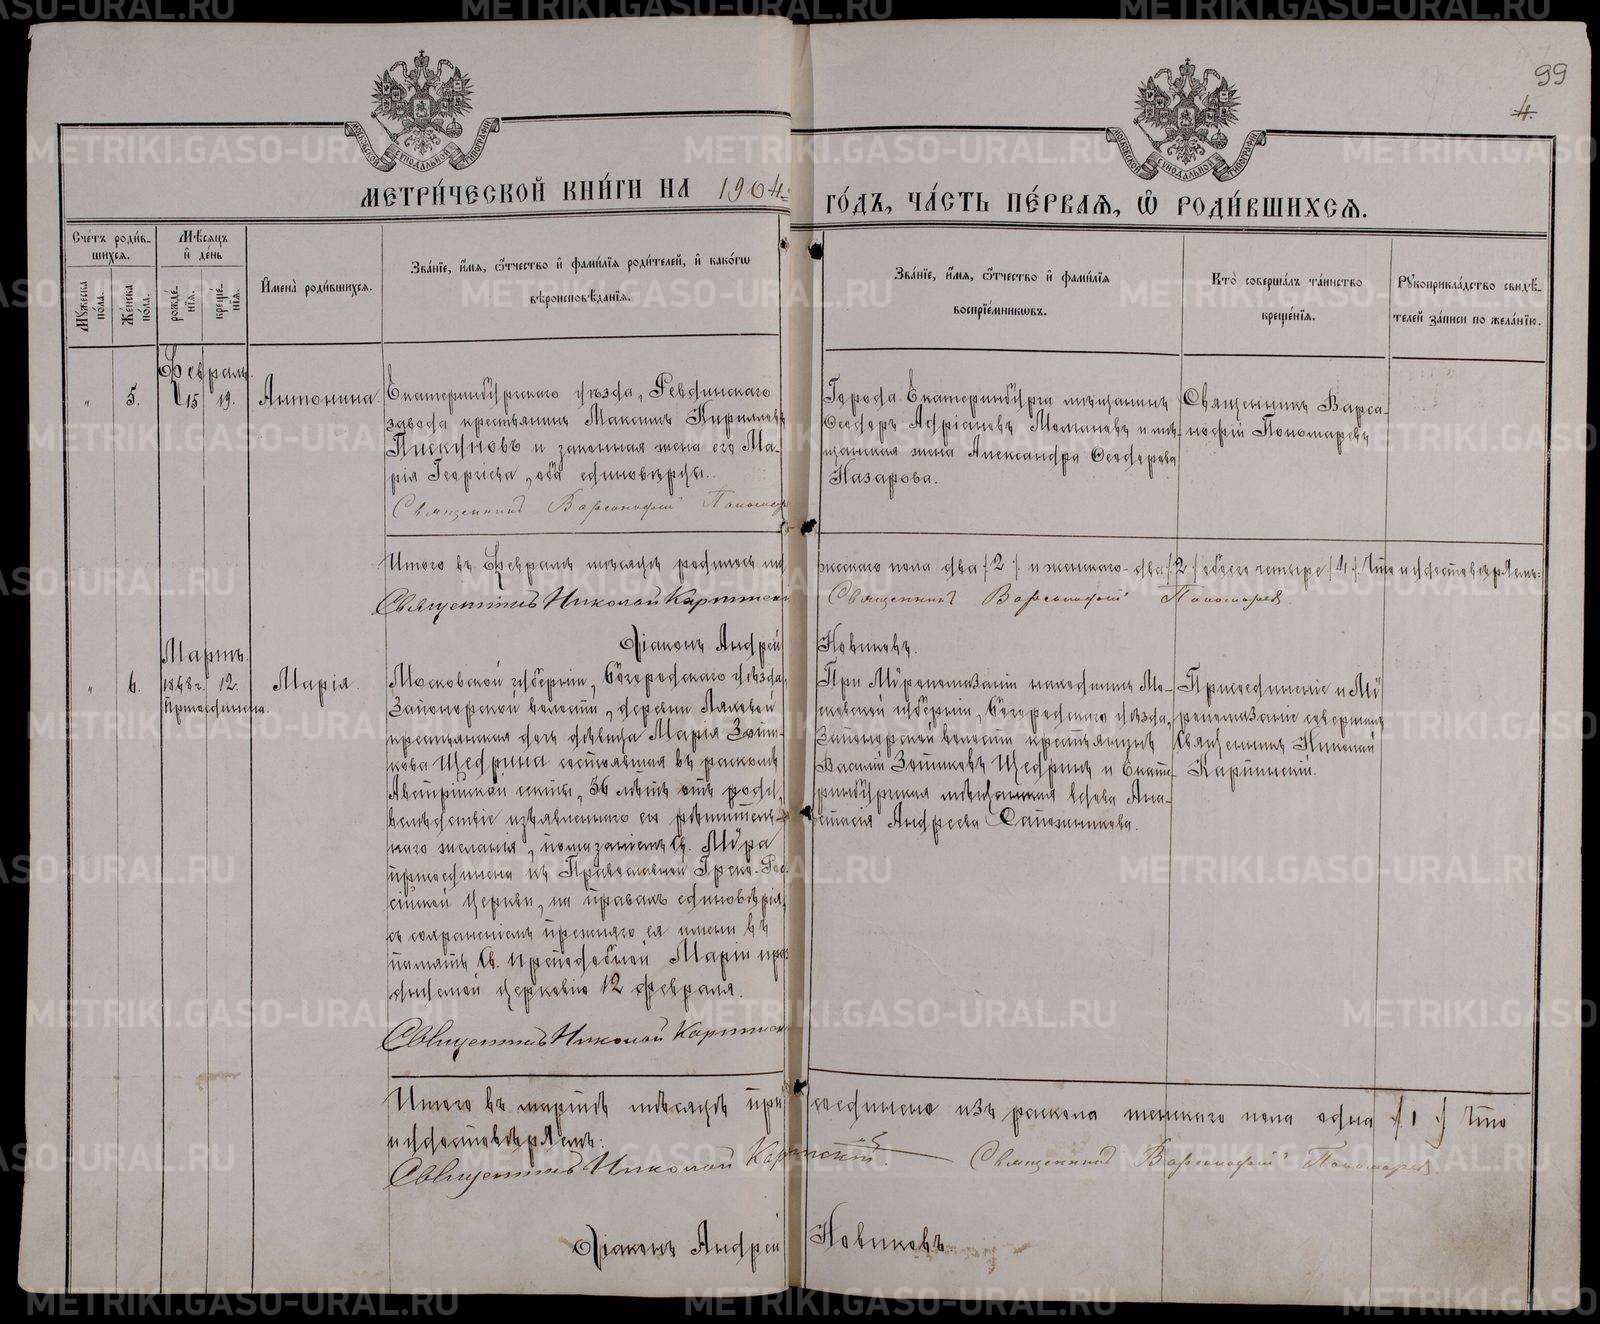 99
4.
МЕТРИ́ЧЕСКОЙ КНИ́ГИ НА 1904 ГО́ДЪ, ЧА́СТЬ ПЕ́РВАѦ, Ѽ РОДИ́ВШИХСѦ.
Сче́тъ роди́в-
шихсѧ.
Мꙋ́жеска по́ла.
Же́нска по́ла.
Мѣ́сѧцъ и҆ де́нь
рожде́-
нїѧ.
креще́-
нїѧ.
И҆мена̀ роди́вшихсѧ.
Зва́нїе, и҆́мѧ, ѻ҆́тчество и҆ фами́лїѧ роди́телей, и҆ како́гѡ
вѣроисповѣ́данїѧ.
Зва́нїе, и҆́мѧ, ѻ҆́тчество и҆ фами́лїѧ
воспрїе́мникѡвъ.
Кто̀ соверша́лъ та́инство
креще́нїѧ.
Рꙋкоприкла́дство свидѣ́-
телей за́писи по жела́нїю.
Февраль.
" 5. 15 19. Антонина.
Екатеринбургскаго уѣзда, Ревдинскаго
завода крестьянинъ Максимъ Кириловъ
Пискуновъ и законная жена его Ма-
рія Георгіева, оба единовѣрцы.
Священникъ Варсонофій Пономарев
Города Екатеринбурга мѣщанинъ
Ѳеодоръ Адріановъ Молчановъ и мѣ-
щанская жена Александра Ѳеодорова
Назарова.
Священникъ Варса-
нофій Пономаревъ
Итого въ Февралѣ мѣсяцѣ родилось му
жескаго пола два (2) и женскаго два (2) обоего четыре (4). Что и удостовѣряемъ:
Священникъ Николай Карпинскій
Священникъ Варсонофій Пономарев
Діаконъ Андрей Новиковъ.
Мартъ.
" 6. 1868 г. 12. Марія.
Присоединена.
Московской губерніи, Богородскаго уѣзда,
Запонорской волости, деревни Ляховой
крестьянская дочь дѣвица Марія Зотикова
Щедрина состоявшая въ расколѣ
Австрійской секты, 36 лѣтъ отъ роду,
вслѣдствіе изъявленнаго ею рѣшитель-
наго желанія, помазаніемъ Св. Мѵра
присоединена къ Православной Греко-Рос-
сійской Церкви, на правахъ единовѣрія,
съ сохраненіемъ прежняго ея имени въ
память Св. Преподобной Маріи праз
днуемой церковію 12 февраля.
Священникъ Николай Карпинскій
При Мѵропомазаніи находились Мо-
сковской губерніи, Богородскаго уѣзда,
Запонорской волости крестьянинъ
Василій Зотиковъ Щедринъ и Екате-
ринбургская мѣщанская вдова Ана-
стасія Андреева Сапожникова.
Присоединеніе и Мѵ-
ропомазаніе совершилъ
Священникъ Николай
Карпинскій.
Итого въ мартѣ мѣсяцѣ при соединено изъ раскола женскаго пола одна (1) Что
и удостовѣряемъ:
Священникъ Николай Карпинскій.
Священникъ Варсонофій Пономарев
Діаконъ Андрей Новиковъ.
METRIKI.GASO-URAL.RU